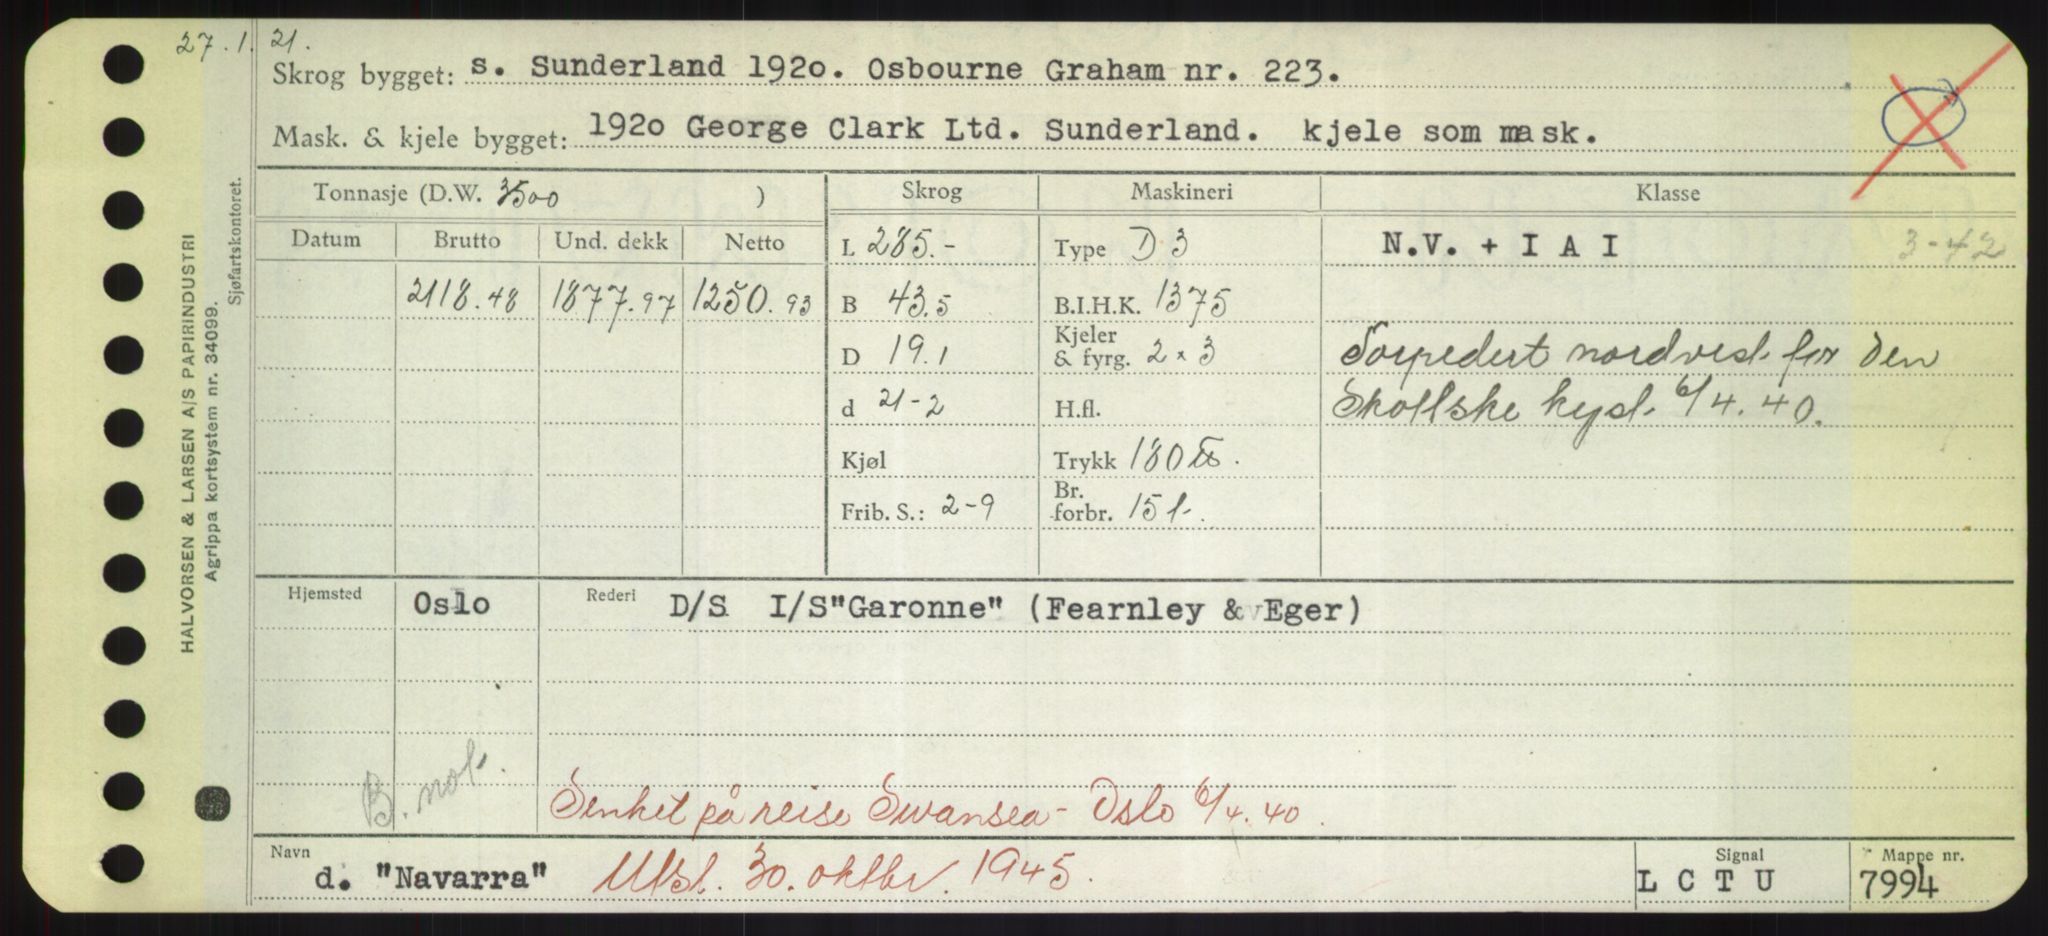 27.1.21.
Skrog bygget: s. Sunderland 1920. Osbourne Graham nr. 223.
Mask. & kjele bygget: 1920 George Clark Ltd. Sunderland. kjele som mask.
Tonnasje (D.W. 3500 ) Skrog Maskineri Klasse
Datum Brutto Und. dekk Netto L 285.- Type D 3 N.V. + I A I 3-42
2118.48 1877.97 1250.93 B 43.5 B.I.H.K. 1375
D 19.1 Kjeler & fyrg. 2 x 3 Torpedert nordvest for den
d 21-2 H.fl. Skottske kyst 6/4.40.
Kjøl Trykk 180 lbs.
Frib. S.: 2-9 Br. forbr. 15 t.
Hjemsted Oslo Rederi D/S I/S"Garonne" (Fearnley & Eger)
B. not.
Senket på reise Swansea - Oslo 6/4.40.
Navn d. "Navarra" Utsl. 30. oktbr. 1945. Signal L C T U Mappe nr. 7994
HALVORSEN & LARSEN A/S PAPIRINDUSTRI
Agrippa kortsystem nr. 34099.
Sjøfartskontoret.